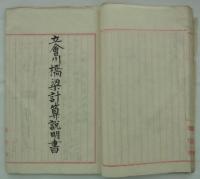 立會川橋梁計算説明書